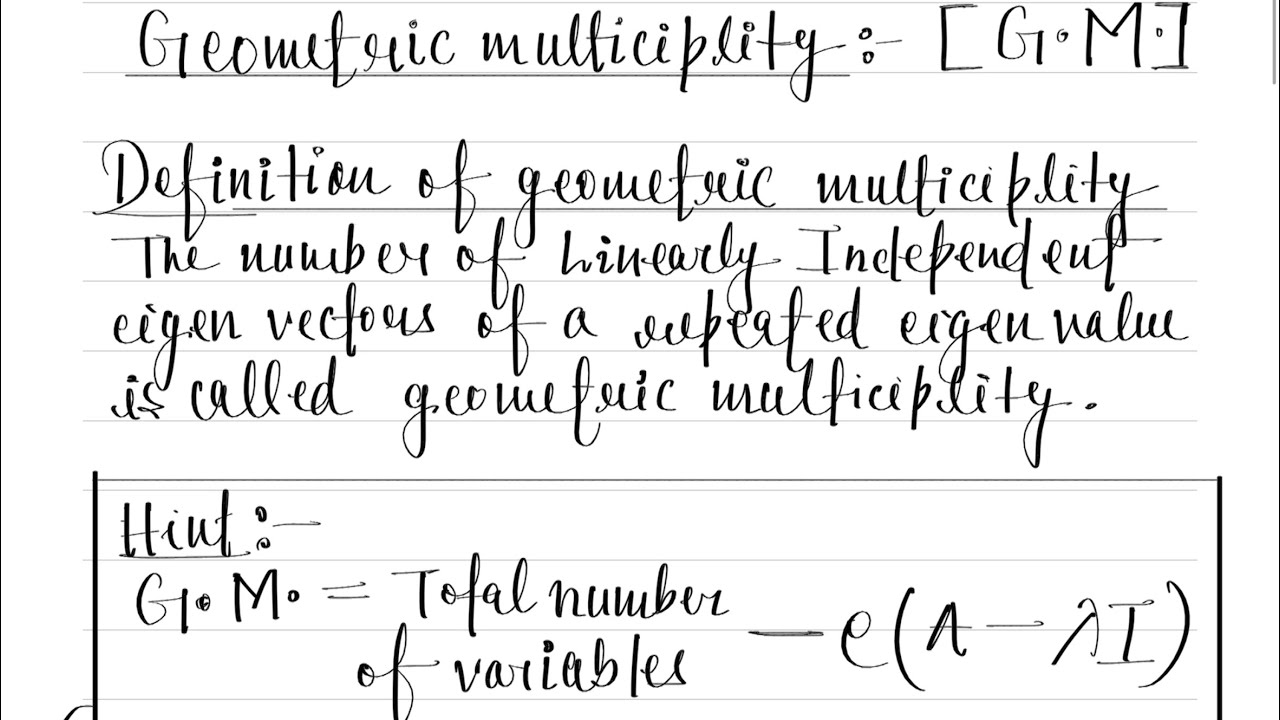 Geometric multiciplity :- [G.M.]
Definition of geometric multiciplity
The number of Linearly Independent
eigen vectors of a repeated eigen value
is called geometric multiciplity.
Hint :-
G.M. = Total number of variables - ρ(A - λI)